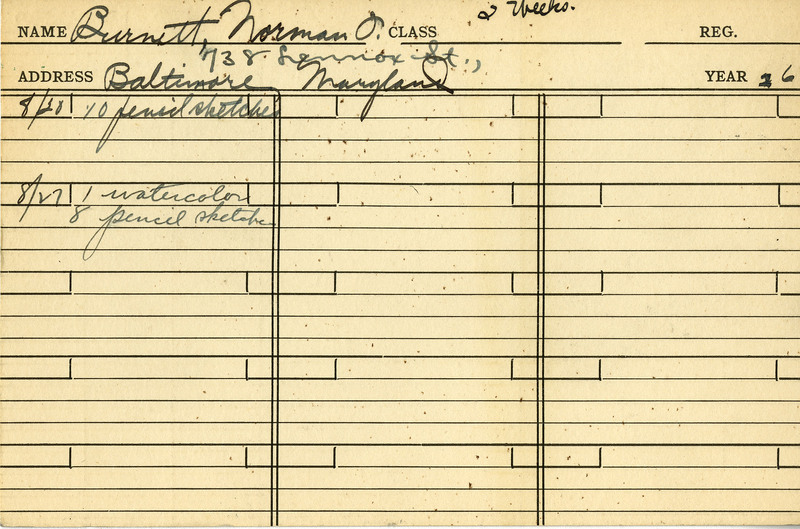 2 Weeks.
NAME Burnett, Norman O. CLASS REG.
738 Lennox St.,
ADDRESS Baltimore Maryland YEAR 26
8/20 10 pencil sketches
8/27 1 watercolor
8 pencil sketches